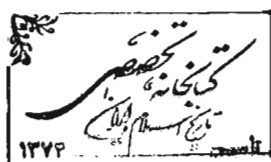 کتابخانه تخصصی
تاریخ اسلام و ایران
۱۳۷۶